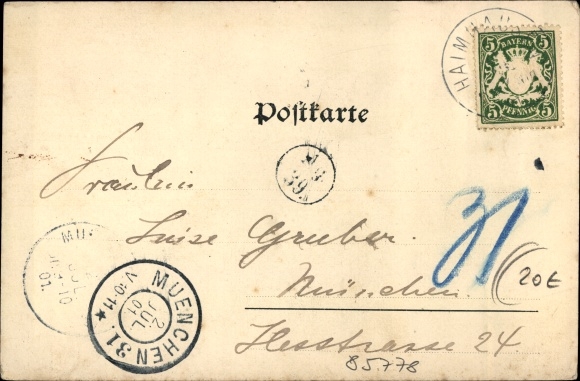 HAIMHAU
5 BAYERN 5
5 PFENNIG 5
Postkarte
39
Fräulein
Luise Gruber.
31
München.
20€
Hesstrasse 24
85778
MUENCHEN 31.
2
JUL
01
V.10-11